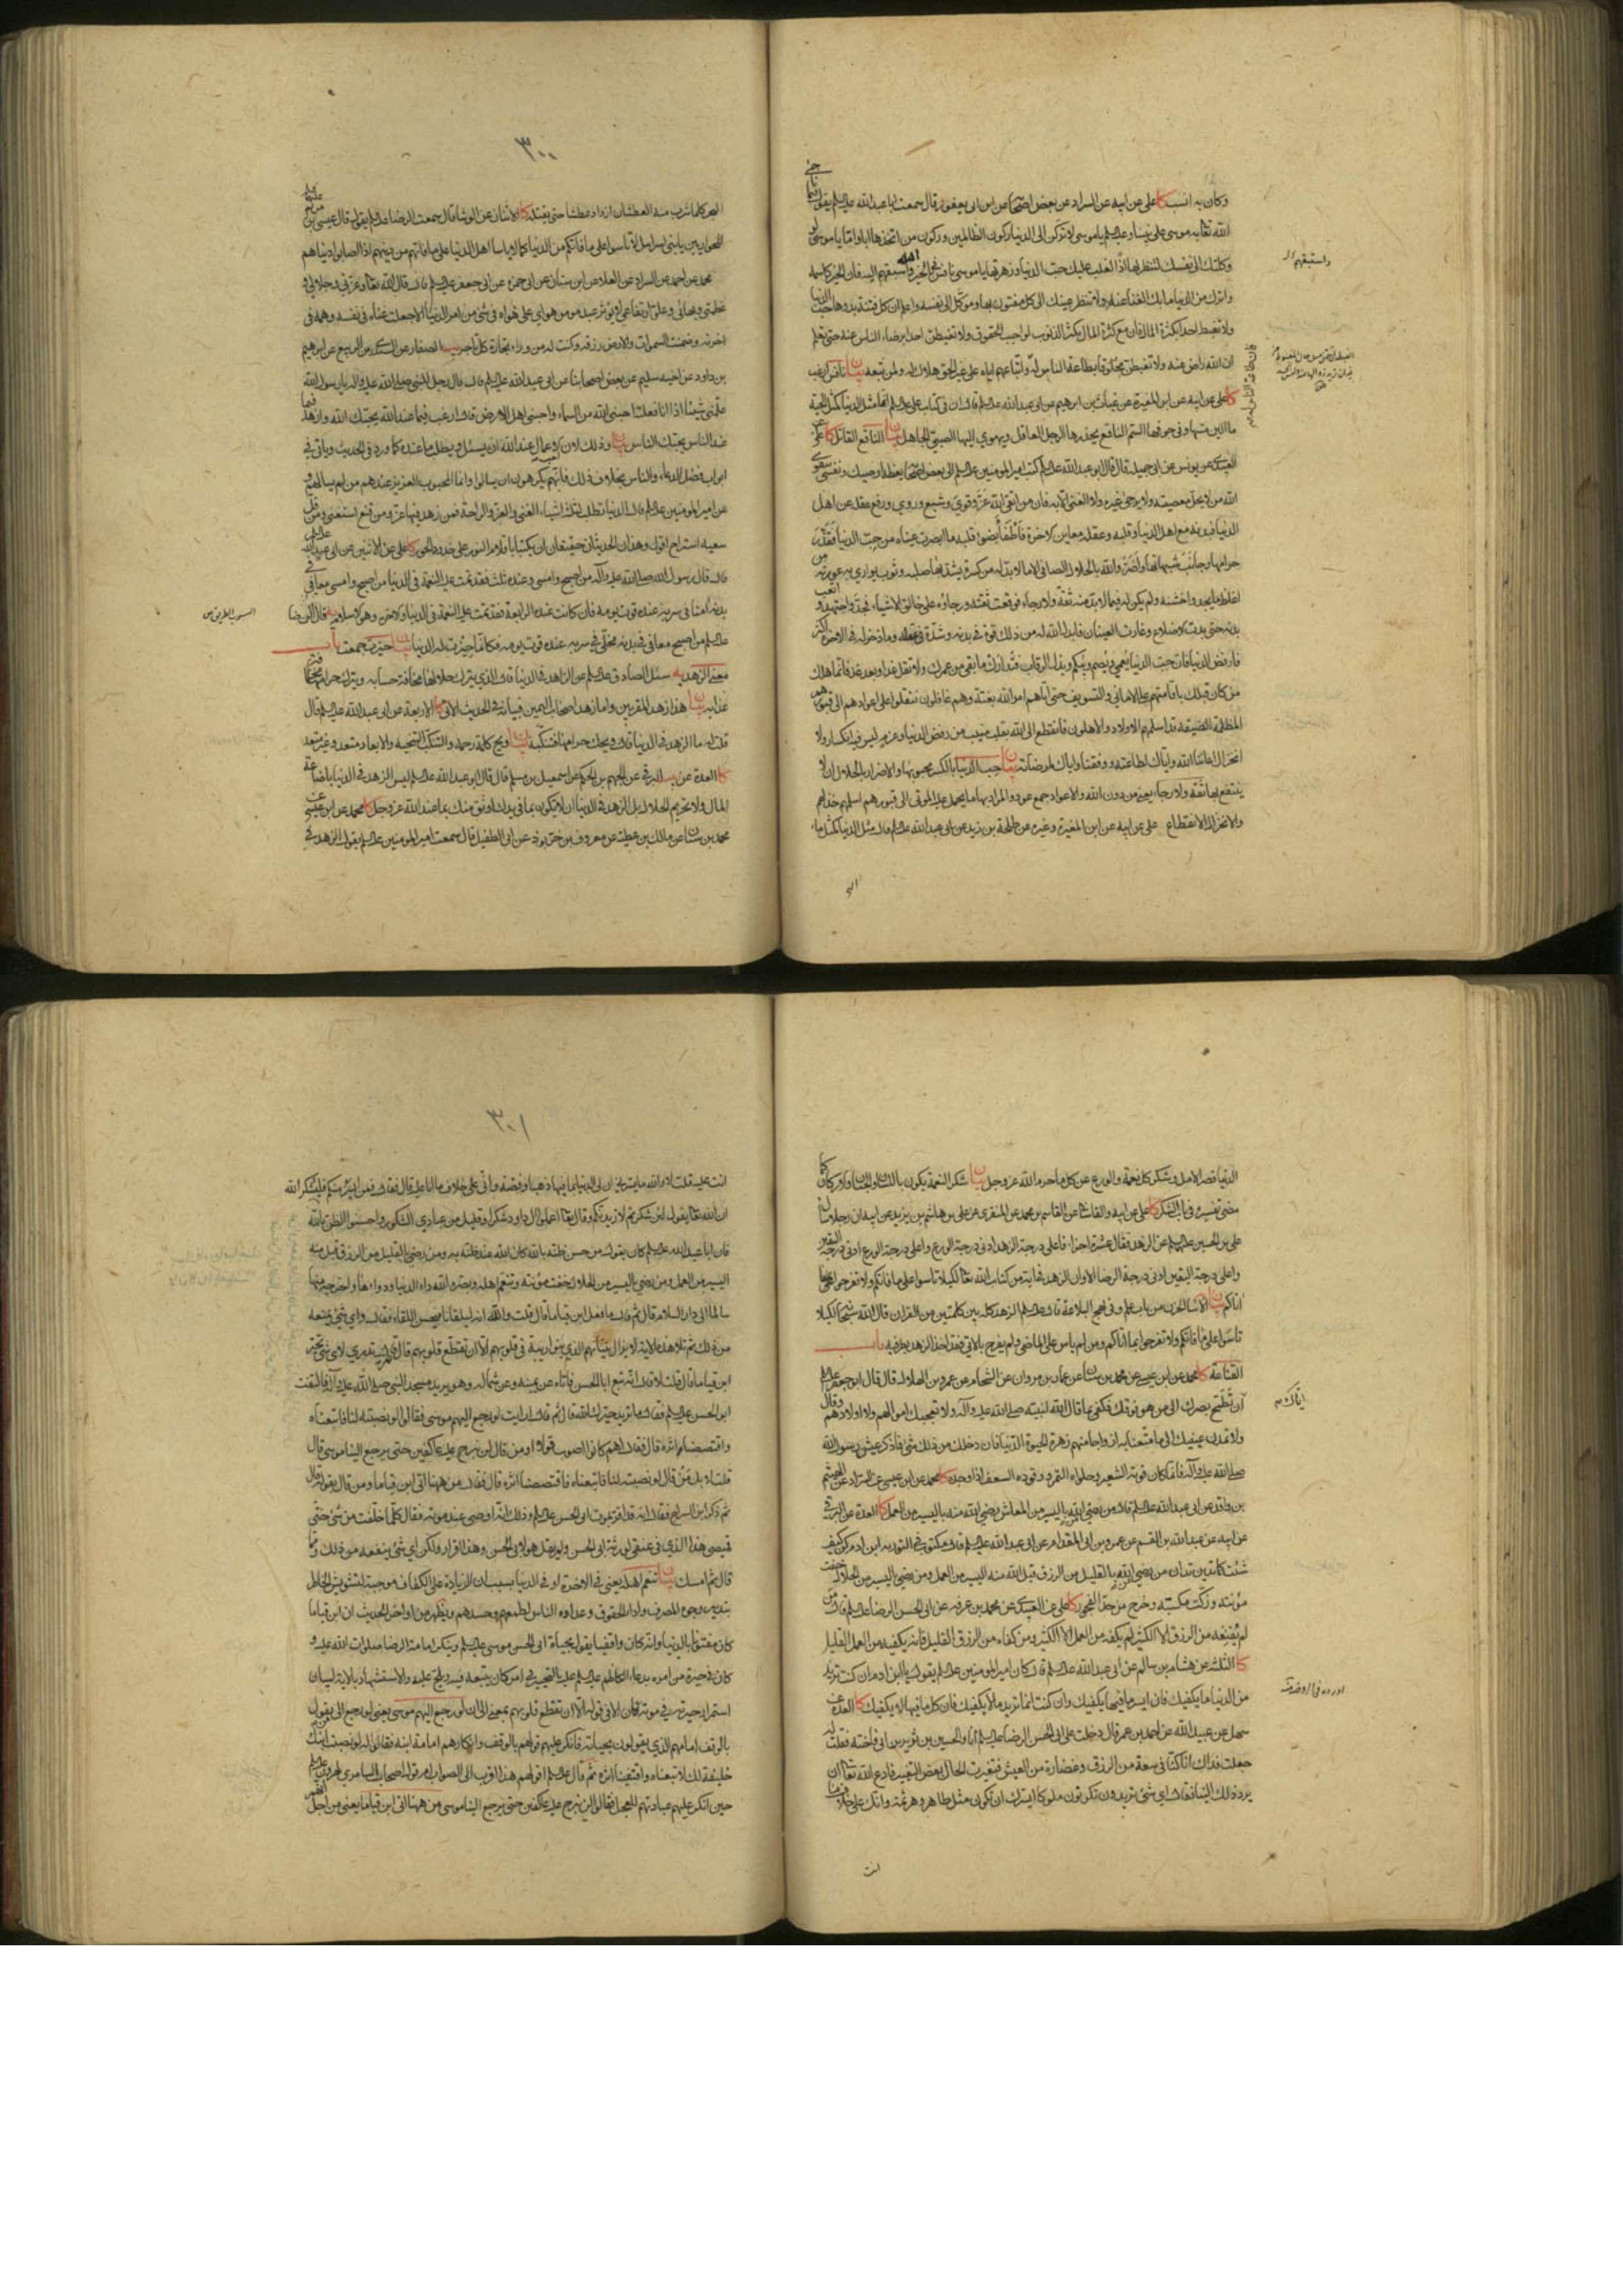 وكان به انسب كا على عن ابيه عن السراد عن بعض اصحابنا عن ابن ابي يعفور قال سمعت ابا عبدالله عليه السلم يقول فيما ناجى
الله تعالى به موسى على نبينا وعليه السلم يا موسى لا تركن الى الدنيا ركون الظالمين وركون من اتخذها ابا واما يا موسى لو
وكلتك الى نفسك لتنظر لها اذا لغلب عليك حب الدنيا وزهرتها يا موسى نافس في الخير اهله واستبقهم اليه فان الخير كاسمه
واترك من الدنيا ما بك الغنا عنه ولا تنظر عينك الى كل مفتون بها وموكل الى نفسه واعلم ان كل فتنة بدوها حب الدنيا
ولا تغبط احدا بكثرة المال فان مع كثرة المال يكثر الذنوب لواجب الحقوق ولا تغبطن احدا برضاء الناس عنه حتى تعلم
ان الله راض عنه ولا تغبطن مخلوقا بطاعة الناس له واتباعهم اياه على غير الحق هلاك له ولمن تبعه بيان نافس ارغب
كا على عن ابيه عن ابن المغيرة عن غياث بن ابراهيم عن ابي عبدالله عليه السلم قال ان في كتاب علي عليه السلم انما مثل الدنيا كمثل الحية
ما الين مسها وفي جوفها السم الناقع يحذرها الرجل العاقل ويهوي اليها الصبي الجاهل بيان الناقع القاتل كا على عن
العبيدي عن يونس عن ابي جميلة قال قال ابو عبدالله عليه السلم كتب امير المومنين عليه السلم الى بعض اصحابه يعظه اوصيك ونفسي بتقوى
الله من لا يحل معصيته ولا يرجى غيره ولا الغنى الا به فان من اتقى الله عز وقوي وشبع وروي ورفع عقله عن اهل
الدنيا فبدنه مع اهل الدنيا وقلبه وعقله معاين الاخرة فاطفأ بضوء قلبه ما ابصرت عيناه من حب الدنيا فقذر
حرامها وجانب شبهاتها واضر والله بالحلال الصافي الا ما لا بد له من كسرة يشد بها صلبه وثوب يواري به عورته من
اغلظ ما يجد واخشنه ولم يكن له فيما لا بد منه ثقة ولا رجاء فوقعت ثقته ورجاؤه على خالق الاشياء فجد واجتهد واتعب
بدنه حتى بدت الاضلاع وغارت العينان فابدل الله له من ذلك قوة في بدنه وشدة في عقله وما ذخر له في الاخرة اكثر
فارفض الدنيا فان حب الدنيا يعمي ويصم ويبكم ويذل الرقاب فتدارك ما بقي من عمرك ولا تقل غدا وبعد غد فانما هلك
من كان قبلك باقامتهم على الاماني والتسويف حتى اتاهم امر الله بغتة وهم غافلون فنقلوا على اعوادهم الى قبورهم
المظلمة الضيقة قد اسلمهم الاولاد والاهلون فانقطع الى الله بقلب منيب من رفض الدنيا وعزم ليس فيه انكسار ولا
انخزال اعاننا الله واياك لطاعته ووفقنا واياك لمرضاته بيان حب الدنيا بالكسر محبوبها والاضرار بالحلال ان لا
ينتفع بها ثقة ولا رجاء يعني من دون الله والاعواد جمع عود والمراد بها ما يحمل عليه الموتى الى قبورهم اسلمهم خذلهم
والانخزال الانقطاع على عن ابيه عن ابن المغيرة وغيره عن طلحة بن زيد عن ابي عبدالله عليه السلم قال مثل الدنيا كمثل ماء
واستبقهم اليه
٣٠٠
البحر كلما شرب منه العطشان ازداد عطشا حتى يقتله كا الاثنان عن الوشا قال سمعت الرضا عليه السلم يقول قال عيسى بن مريم عليهما السلم
للحواريين يا بني اسرائيل لا تاسوا على ما فاتكم من الدنيا كما لا ياسا اهل الدنيا على ما فاتهم من دينهم اذا اصابوا دنياهم
محمد عن احمد عن السراد عن العلا عن ابن سنان عن ابي حمزه عن ابي جعفر عليه السلم قال قال الله تعالى وعزتي وجلالي و
عظمتي وبهائي وعلو ارتفاعي لا يوثر عبد مومن هواي على هواه في شئ من امر الدنيا الا جعلت غناه في نفسه وهمه في
اخرته وضمنت السموات والارض رزقه وكنت له من وراء تجارة كل تاجر يب الصفار عن السندي بن الربيع عن ابراهيم
بن داود عن اخيه سليم عن بعض اصحابنا عن ابي عبدالله عليه السلم قال قال رجل للنبي صلى الله عليه واله يا رسول الله
علمني شيئا اذا انا فعلت احبني الله من السماء واحبني اهل الارض قال ارغب فيما عند الله يحبك الله وازهد فيما
عند الناس يحبك الناس بيان وذلك لان
ابواب فضل الدعاء والناس بخلاف ذلك فانهم يكرهون ان يسالوا وانما المحبوب العزيز عندهم من لم يسالهم و
عن امير المومنين عليه السلم قال الدنيا تطلب لثلثة اشياء الغنى والعز والراحة فمن زهد فيها عز ومن قنع استغنى ومن قل
سعيه استراح اقول وهذان الحديثان حقيقان ان يكتبا باقلام النور على خدود الحور كا على عن الاثنين عن ابي عبدالله عليه السلم
قال قال رسول الله صلى الله عليه وآله من اصبح وامسى وعنده ثلث فقد تمت عليه النعمة في الدنيا من اصبح وامسى معافى في
بدنه امنا في سربه عنده قوت يومه فان كانت عنده الرابعة فقد تمت عليه النعمة في الدنيا والاخرة وهو الاسلام يه قال الرضا
عليه السلم من اصبح معافى في بدنه مخلى في سربه عنده قوت يومه فكانما حيزت له الدنيا بيان حيزت جمعت باب
معنى الزهد يه سئل الصادق عليه السلم عن الزاهد في الدنيا قال الذي يترك حلالها مخافة حسابه ويترك حرامها مخافة
عذابه بيان هذا زهد المقربين واما زهد اصحاب اليمين فبيانه في الحديث الاتي كا الاربعة عن ابي عبدالله عليه السلم قال
قلت له ما الزهد في الدنيا قال ويحك حرامها فتنكبه بيان ويح كلمة رحمه والتنكب التنحية والابعاد متعد وغير متعد
كا العدة عن البرقي عن الجهم بن الحكم عن اسمعيل بن مسلم قال قال ابو عبدالله عليه السلم ليس الزهد في الدنيا باضاعة
المال ولا تحريم الحلال بل الزهد في الدنيا ان لا تكون بما في يدك اوثق منك بما عند الله عز وجل كا محمد عن ابن عيسى عن
محمد بن سنان عن مالك بن عطية عن معروف بن خربوذ عن ابي الطفيل قال سمعت امير المومنين عليه السلم يقول الزهد في
الدنيا قصر الامل وشكر كل نعمة والورع عن كل ما حرم الله عز وجل بيان شكر النعمة يكون باللسان والجنان والاركان كما
مضى تفسيره في باب الشكر كا على عن ابيه والقاساني عن القاسم بن محمد عن المنقري عن علي بن هاشم بن بريد عن ابيه ان رجلا سال
علي بن الحسين عليهما السلم عن الزهد فقال عشرة اجزاء فاعلى درجة الزهد ادنى درجة الورع واعلى درجة الورع ادنى درجة اليقين
واعلى درجة اليقين ادنى درجة الرضا الا وان الزهد في اية من كتاب الله تعالى لكيلا تاسوا على ما فاتكم ولا تفرحوا بما
اتاكم بيان الاسا الحزن من باب علم وفي نهج البلاغة قال عليه السلم الزهد كله بين كلمتين من القران قال الله سبحانه لكيلا
تاسوا على ما فاتكم ولا تفرحوا بما اتاكم ومن لم ياس على الماضي ولم يفرح بالاتي فقد اخذ الزهد بطرفيه باب
القناعة كا محمد عن ابن عيسى عن محمد بن سنان عن عمار بن مروان عن الشحام عن عمرو بن هلال قال قال ابو جعفر عليه السلم
ان تطمح بصرك الى من هو فوقك فكفى بما قال الله لنبيه صلى الله عليه وآله ولا تعجبك اموالهم ولا اولادهم وقال
ولا تمدن عينيك الى ما متعنا به ازواجا منهم زهرة الحيوة الدنيا فان دخلك من ذلك شئ فاذكر عيش رسول الله
صلى الله عليه وآله فانما كان قوته الشعير وحلواه التمر ووقوده السعف اذا وجده كا محمد عن ابن عيسى عن السراد عن الهيثم
بن واقد عن ابي عبدالله عليه السلم قال من رضي من الله باليسير من المعاش رضي الله منه باليسير من العمل كا العدة عن البرقي
عن ابيه عن عبدالله بن القسم عن عمرو بن ابي المقدام عن ابي عبدالله عليه السلم قال مكتوب في التورية ابن ادم كن كيف
شئت كما تدين تدان من رضي من الله بالقليل من الرزق قبل الله منه اليسير من العمل ومن رضي باليسير من الحلال خفت
مؤنته وزكت مكسبته وخرج من حد الفجور كا على عن العبيدي عن محمد بن عرفه عن ابي الحسن الرضا عليه السلم قال من
لم يقنعه من الرزق الا الكثير لم يكفه من العمل الا الكثير ومن كفاه من الرزق القليل فانه يكفيه من العمل القليل
كا الثلثة عن هشام بن سالم عن ابي عبدالله عليه السلم قال كان امير المومنين عليه السلم يقول يا ابن ادم ان كنت تريد
من الدنيا ما يكفيك فان ايسر ما فيها يكفيك وان كنت انما تريد ما لا يكفيك فان كل ما فيها لا يكفيك كا العدة عن
سهل عن عبيد الله عن احمد بن عمر قال دخلت على ابي الحسن الرضا عليه السلم انا والحسين بن ثوير بن ابي فاخته فقلت له
جعلت فداك انا كنا في سعة من الرزق وغضارة من العيش فتغيرت الحال بعض التغير فادع الله تعالى ان
يرد ذلك الينا فقال اي شئ تريدون تكونون ملوكا ايسرك ان تكون مثل طاهر وهرثمة وانك على خلاف ما
انت
اياك م
٣٠١
انت عليه قلت لا والله ما يسرني ان لي الدنيا بما فيها ذهبا وفضة واني على خلاف ما انا عليه قال فقال فمن ايسر منكم فليشكر الله
ان الله تعالى يقول لئن شكرتم لازيدنكم وقال تعالى اعملوا ال داود شكرا وقليل من عبادي الشكور واحسنوا الظن بالله
فان ابا عبدالله عليه السلم كان يقول من حسن ظنه بالله كان الله عند ظنه به ومن رضي بالقليل من الرزق قبل منه
اليسير من العمل ومن رضي باليسير من الحلال خفت مؤنته وتنعم اهله وبصره الله داء الدنيا ودواءها واخرجه منها
سالما الى دار السلام قال ثم قال ما فعل ابن قياما قال قلت والله انه ليلقانا فيحسن اللقاء فقال واي شئ يمنعه
من ذلك ثم تلا هذه الاية لا يزال بنيانهم الذي بنوا ريبة في قلوبهم الا ان تقطع قلوبهم قال ثم قال تدري لاي شئ تحير
ابن قياما قال قلت لا قال انه تبع ابا الحسن فاتاه عن يمينه وعن شماله وهو يريد مسجد النبي صلى الله عليه وآله فالتفت
ابو الحسن عليه السلم فقال ما تريد حيرك الله قال ثم قال ارايت لو رجع اليهم موسى فقالوا لو نصبته لنا فاتبعناه
واقتصصنا اثره قال فقال اهم كانوا اصوب قولا او من قال لن نبرح عليه عاكفين حتى يرجع الينا موسى قال
قلت لا بل من قال لو نصبته لنا فاتبعناه واقتصصنا اثره قال فقال من ههنا اتى ابن قياما ومن قال بقوله قال
ثم ذكر ابن السراج فقال انه قد اقر بموت ابي الحسن عليه السلم وذلك انه اوصى عند موته فقال كل ما خلفت من شئ حتى
قميصي هذا الذي في عنقي لورثة ابي الحسن ولم يقل هو لابي الحسن وهذا اقرار ولكن اي شئ ينفعه من ذلك ومما
قال ثم امسك بيان تنعم اهله يعني في الاخرة او في الدنيا بسبب ان الزيادة على الكفاف موجبة لتشويش الخاطر
بتدبير وجوه المصرف واداء الحقوق وعداوة الناس لطمعهم وحسدهم ويظهر من اواخر الحديث ان ابن قياما
كان مفتونا بالدنيا وانه كان واقفيا يقول بحياة ابي الحسن موسى عليه السلم وينكر امامة الرضا صلوات الله عليه و
كان في حيرة من امره بدعاء الكاظم عليه السلم عليه بالتحير في امر كان يتبعه فيه ويلح عليه والاستشهاد بالاية لبيان
استمرار حيرته في موته فان الا في قوله الا ان تقطع قلوبهم بمعنى الى ان لو رجع اليهم موسى يعني لو رجع الى من يقول
بالوقف امامهم الذي يقولون بحياته فانكر عليهم قولهم بالوقف وانكارهم امامة ابنه فقالوا له لو نصبت ابنك
خليفة لك لاتبعناه واقتفينا اثره ثم قال عليه السلم اقولهم هذا اقرب الى الصواب ام قول اصحاب السامري لهرون عليه السلم
حين انكر عليهم عبادتهم للعجل فقالوا لن نبرح عليه عاكفين حتى يرجع الينا موسى من ههنا اتى ابن قياما يعني من اجل